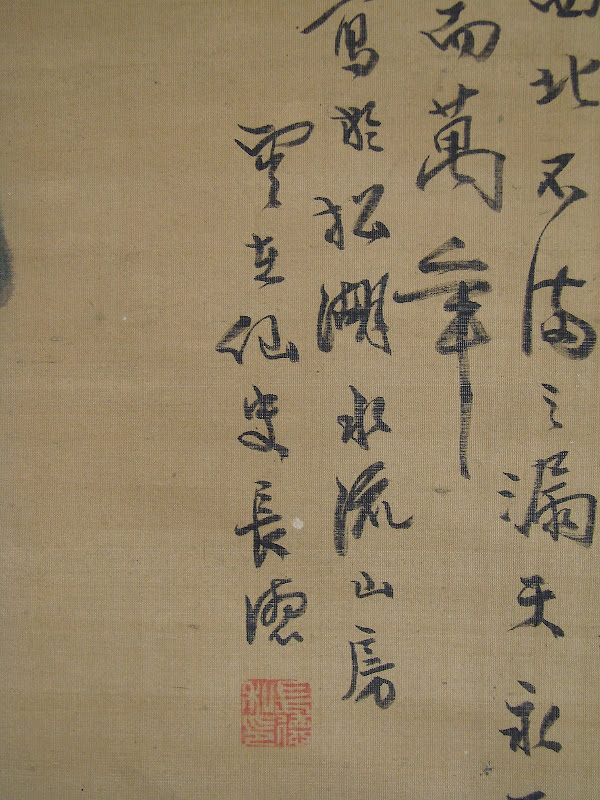 西北不滿之漏天永
而萬年
寫於松湖水流山房
雲在仙史長德